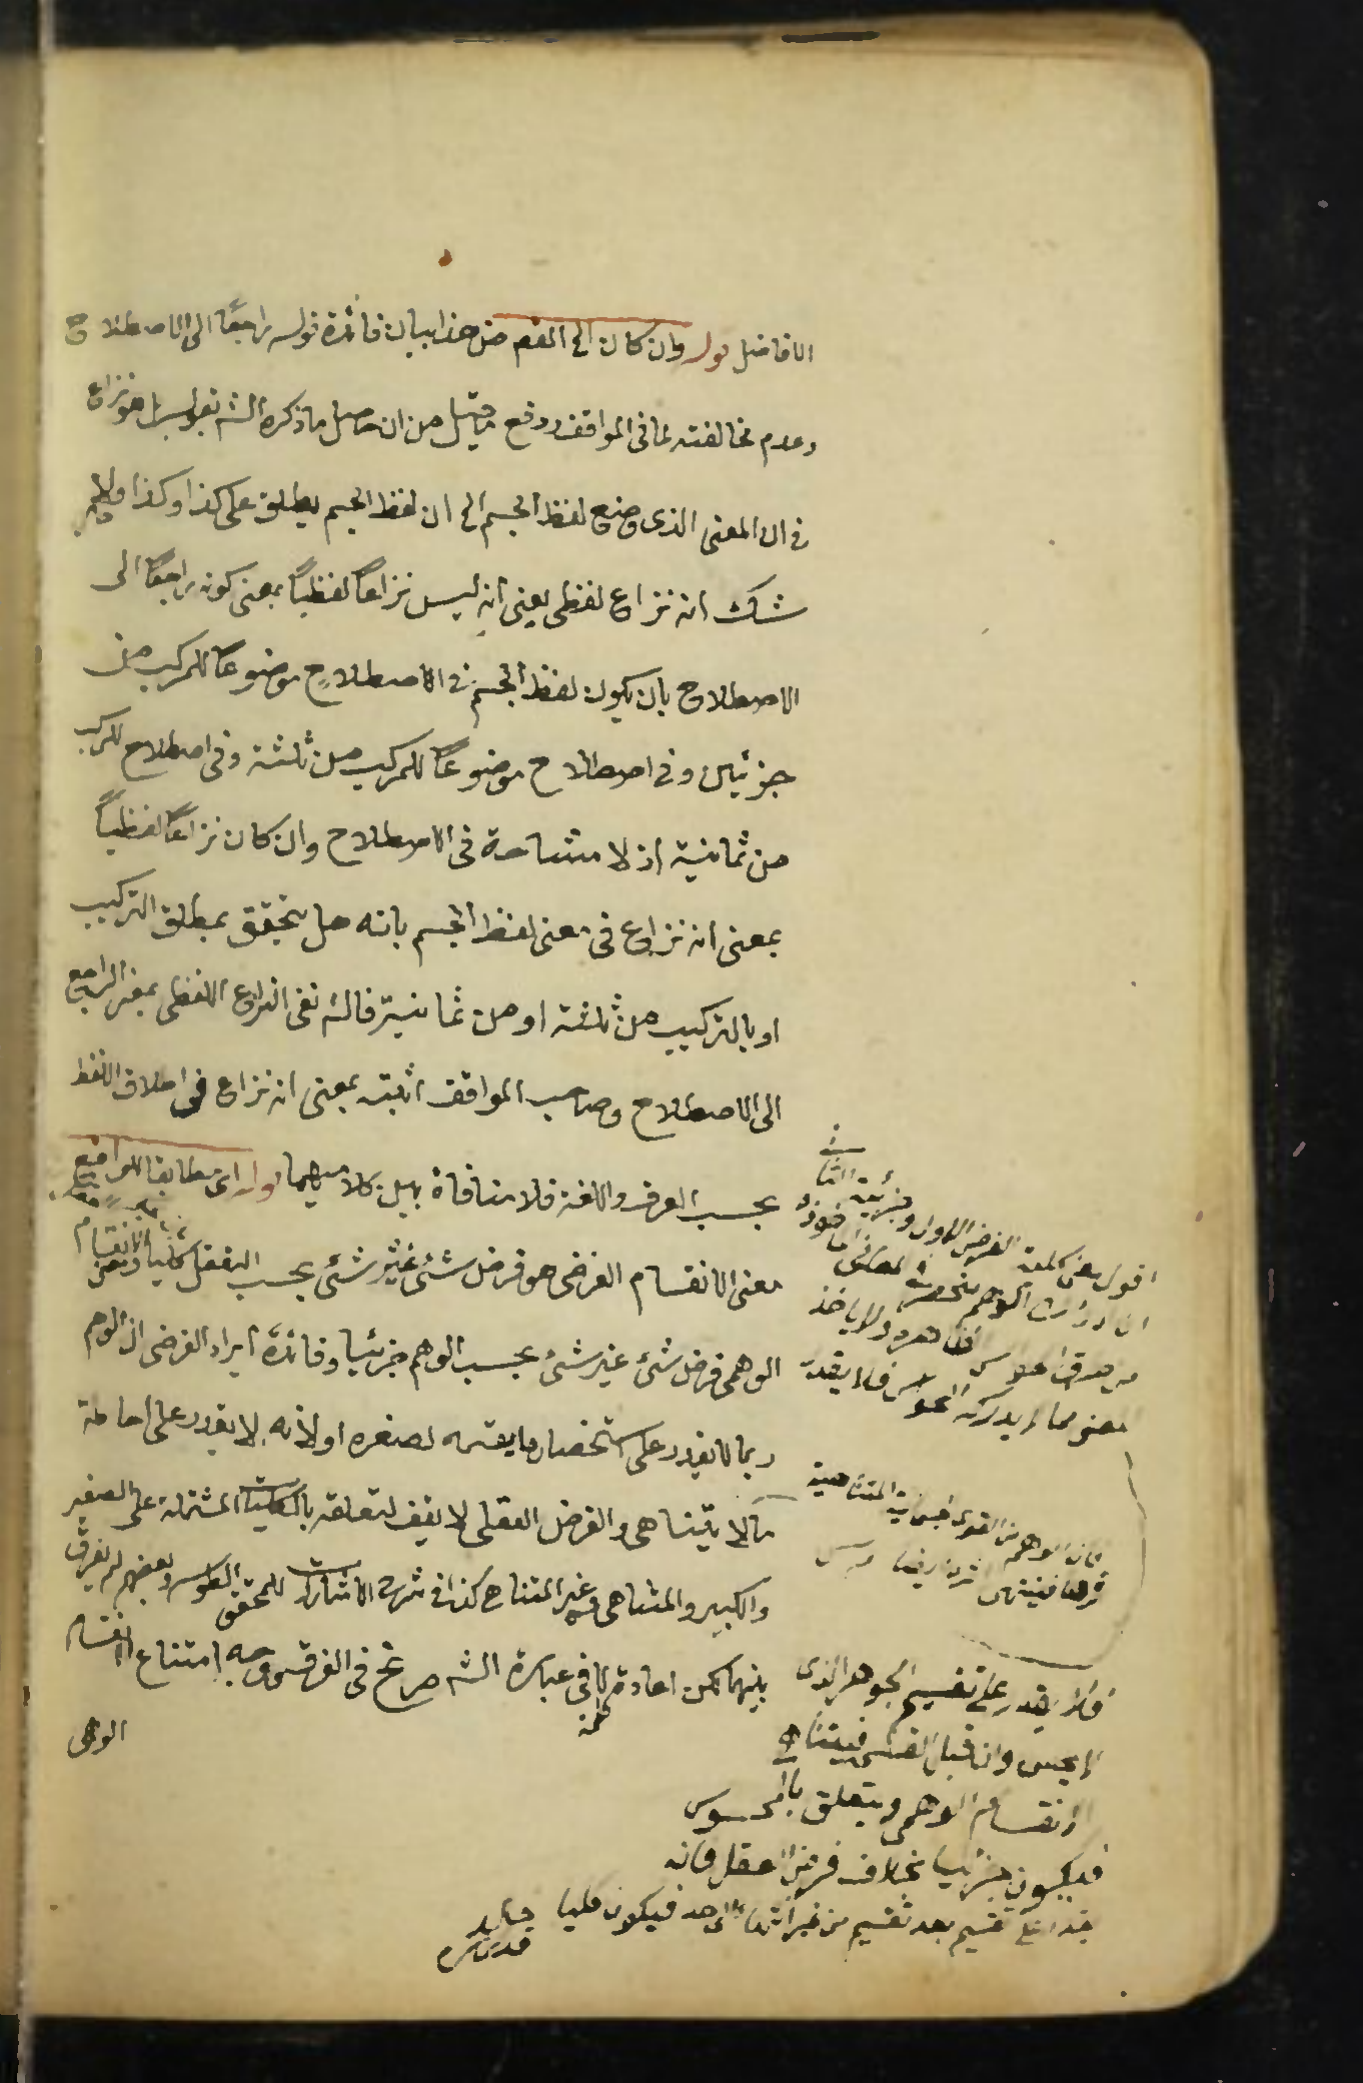 الافاضل قوله وان كان الخ المقصود من هذا بيان فائدة قوله راجعًا الى الاصطلاح
وعدم مخالفته لما فى المواقف ودفع ما قيل من ان حاصل ما ذكره الش بقوله بل هو نزاع
فى ان المعنى الذى وضع لفظ الجسم الخ ان لفظ الجسم يطلق على كذا وكذا ولا
شك انه نزاع لفظى يعنى انه ليس نزاعًا لفظيًا بمعنى كونه راجعًا الى
الاصطلاح بان يكون لفظ الجسم فى الاصطلاح موضوعًا للمركب من
جزئين وفى اصطلاح موضوعًا للمركب من ثلثة وفى اصطلاح للمركب
من ثمانية اذ لا مشاحة فى الاصطلاح وان كان نزاعًا لفظيًا
بمعنى انه نزاع فى معنى لفظ الجسم بانه هل يتحقق بمطلق التركيب
او بالتركيب من ثلثة او من ثمانية فالش نفى النزاع اللفظى بمعنى الراجع
الى الاصطلاح وصاحب المواقف اثبته بمعنى انه نزاع فى اطلاق اللفظ
بحسب العرف واللغة فلا منافاة بين كلاميهما قوله اى مطابقا للواقع
معنى الانقسام الفرضى هو فرض شئ غير شئ بحسب التعقل كليا ومعنى الانقسام
الوهمى فرض شئ غير شئ بحسب الوهم جزئيا وفائدة ايراد الفرضى ان الوهم
ربما لا يقدر على استحضار ما يقسمه لصغره او لانه لا يقدر على احاطة
ما لا يتناهى والفرض العقلى لا يقف لتعلقه بالكليات المشتملة على الصغير
والكبير والمتناهى وغير المتناهى كذا فى شرح الاشارات للمحقق الطوسى وبعضهم لم يفرق
بينهما لكن اعادة لا فى عبارة الش صريح فى الفرق ووجه امتناع الانقسام
الوهمى
اقول معنى كلية الفرض الاول وجزئية الثانى
ان ادراك الوهم منحصر فى المعانى المأخوذة
من طرق الحواس الظاهرة ولا يأخذ
معنى مما لا يدركه الحواس فلا يقدر
فان الوهم من القوى الجسمانية المتناهية
فلا يقدر على تقسيم الجوهر الذى
لا يحس وان قبل القسمة فيتناهى
الانقسام الوهمى ويتعلق بالمحسوس
فيكون جزئيا بخلاف فرض العقل فانه
تقسيم بعد تقسيم من غير انتهاء الى حد فيكون كليا
قدس سره